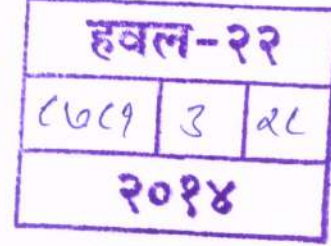 हवल-२२
८७८१ ३ २८
२०१४